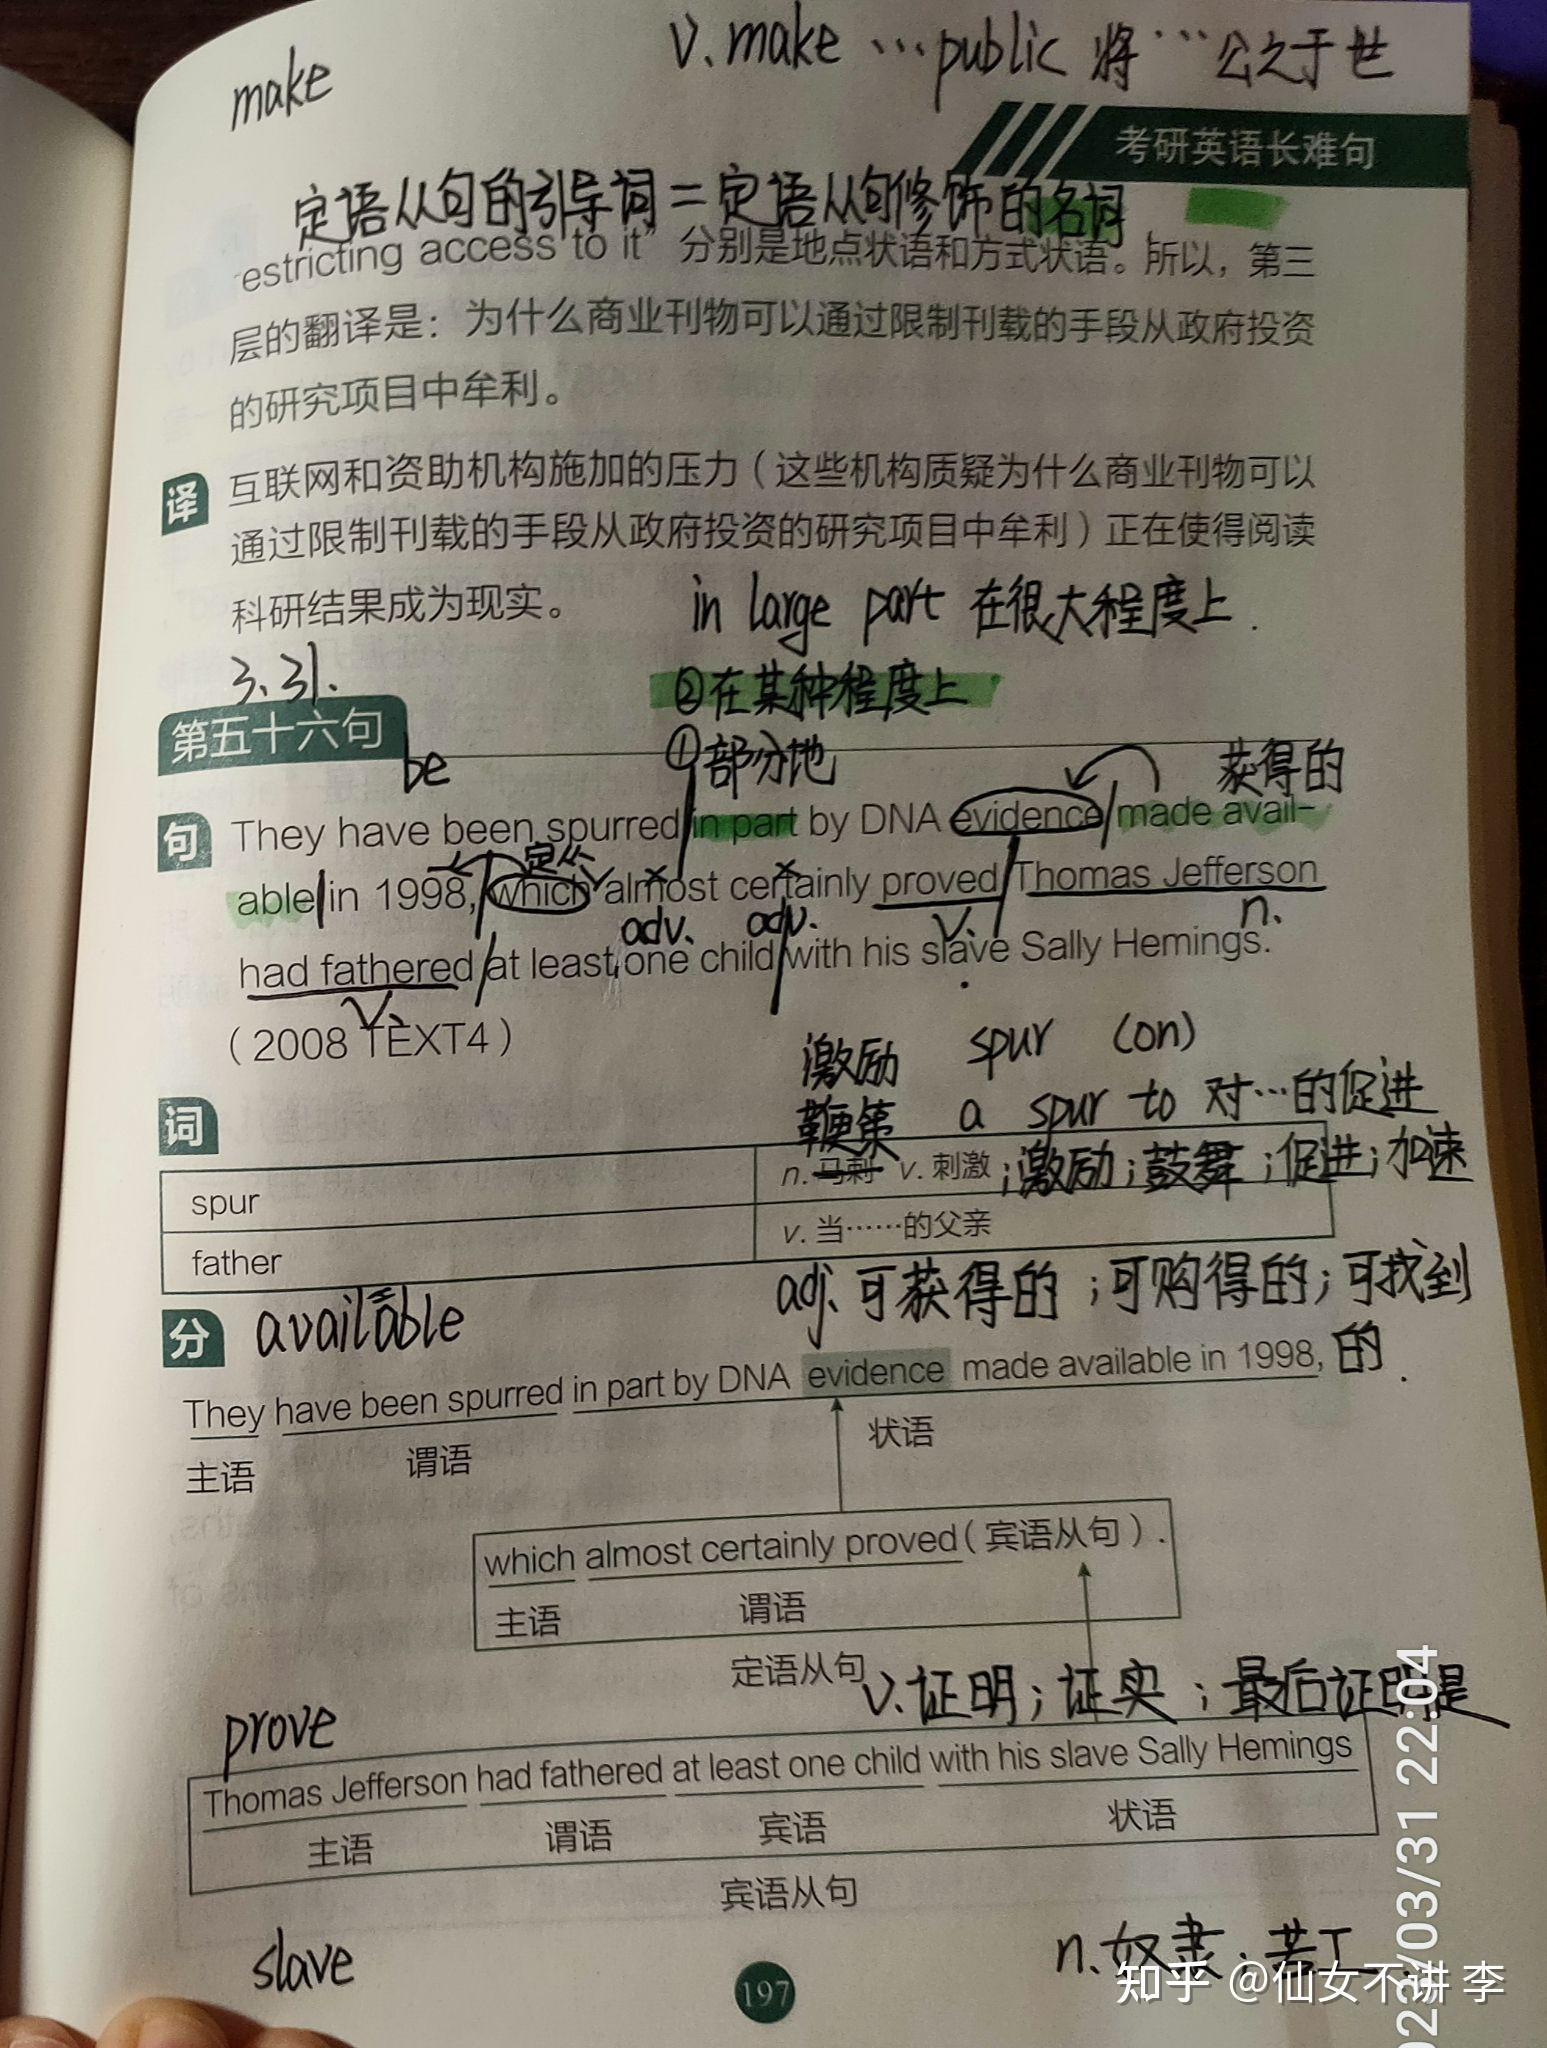 make
v. make …public 将…公之于世
考研英语长难句
定语从句的引导词 = 定语从句修饰的名词
estricting access to it” 分别是地点状语和方式状语。所以，第三
层的翻译是：为什么商业刊物可以通过限制刊载的手段从政府投资
的研究项目中牟利。
译 互联网和资助机构施加的压力（这些机构质疑为什么商业刊物可以
通过限制刊载的手段从政府投资的研究项目中牟利）正在使得阅读
科研结果成为现实。
in large part 在很大程度上.
3.31.
②在某种程度上
第五十六句
be
①部分地
获得的
句 They have been spurred in part by DNA evidence made avail-
定从
able in 1998, which almost certainly proved Thomas Jefferson
adv. adv. v. n.
had fathered at least one child with his slave Sally Hemings.
v.
（2008 TEXT4）
激励 spur (on)
鞭策 a spur to 对…的促进
词
spur n. 马刺 v. 刺激 ;激励;鼓舞;促进;加速
father v. 当……的父亲
adj. 可获得的;可购得的;可找到
分 available
的.
They have been spurred in part by DNA evidence made available in 1998,
主语 谓语 状语
which almost certainly proved（宾语从句）.
主语 谓语
定语从句
prove v. 证明;证实;最后证明是
Thomas Jefferson had fathered at least one child with his slave Sally Hemings
主语 谓语 宾语 状语
宾语从句
slave n. 奴隶;苦工
197
知乎 @仙女不讲 李
023/03/31 22:04